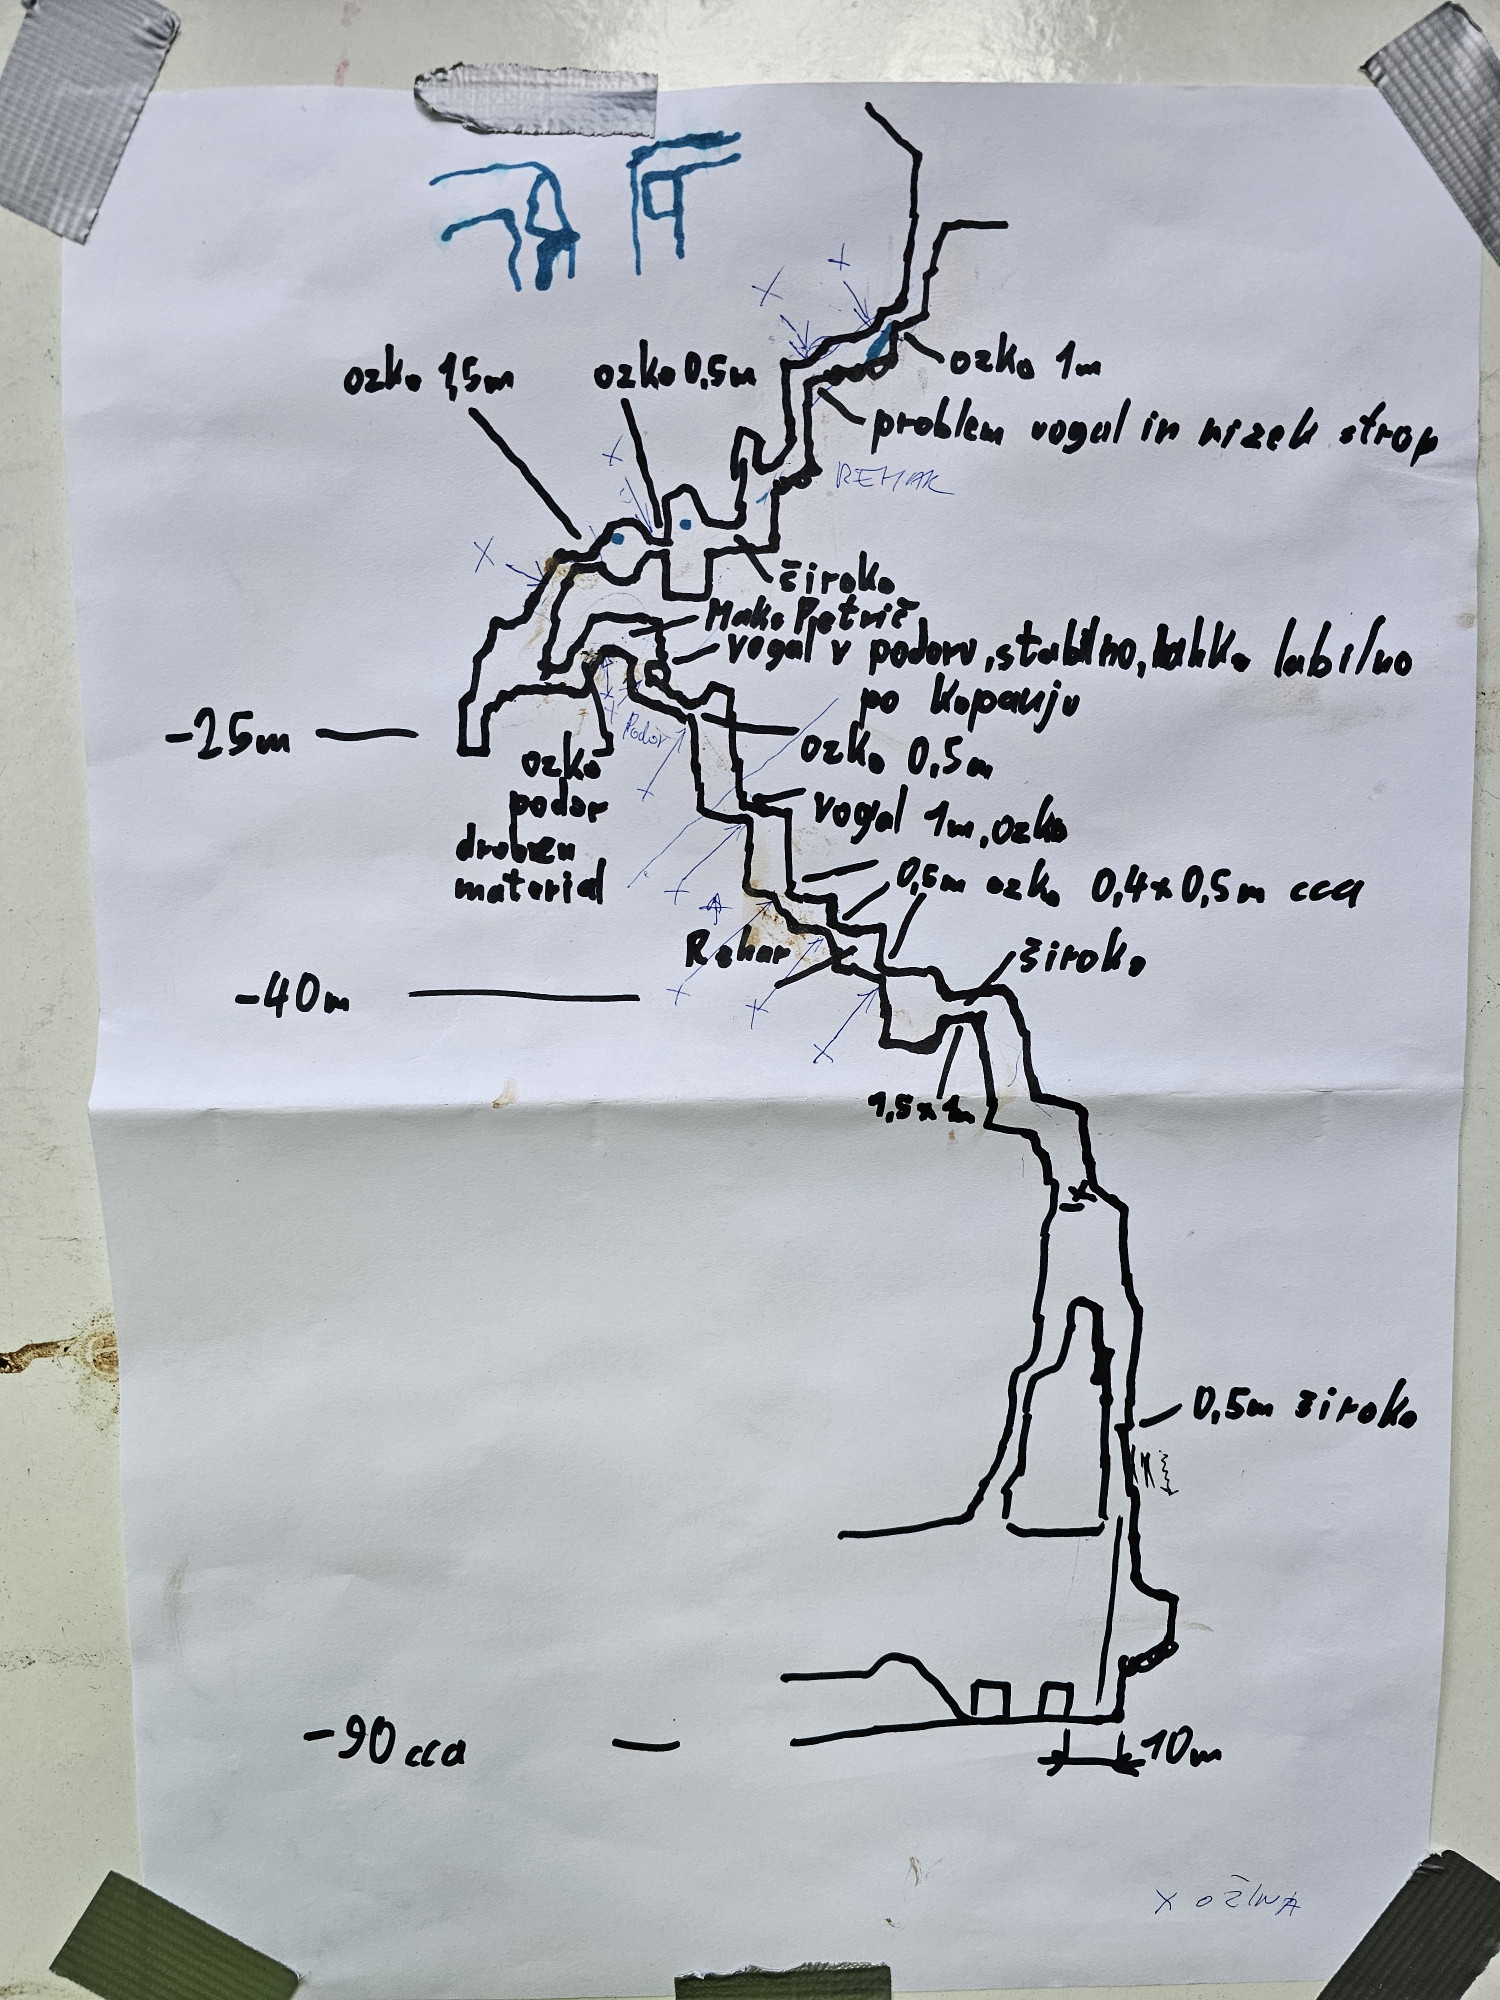 ozko 1,5m
ozko 0,5m
ozko 1m
problem vogal in nizek strop
REHAK
široko
Mako Petrič
vogal v podoru, stabilno, lahko labilno
po kopanju
-25m
Podor
ozko 0,5m
ozko
podor
droben
material
vogal 1m, ozko
0,5m ozko 0,4x0,5m cca
Rehar
široko
-40m
1,5x1m
0,5m široko
-90 cca
10m
X OŽINA